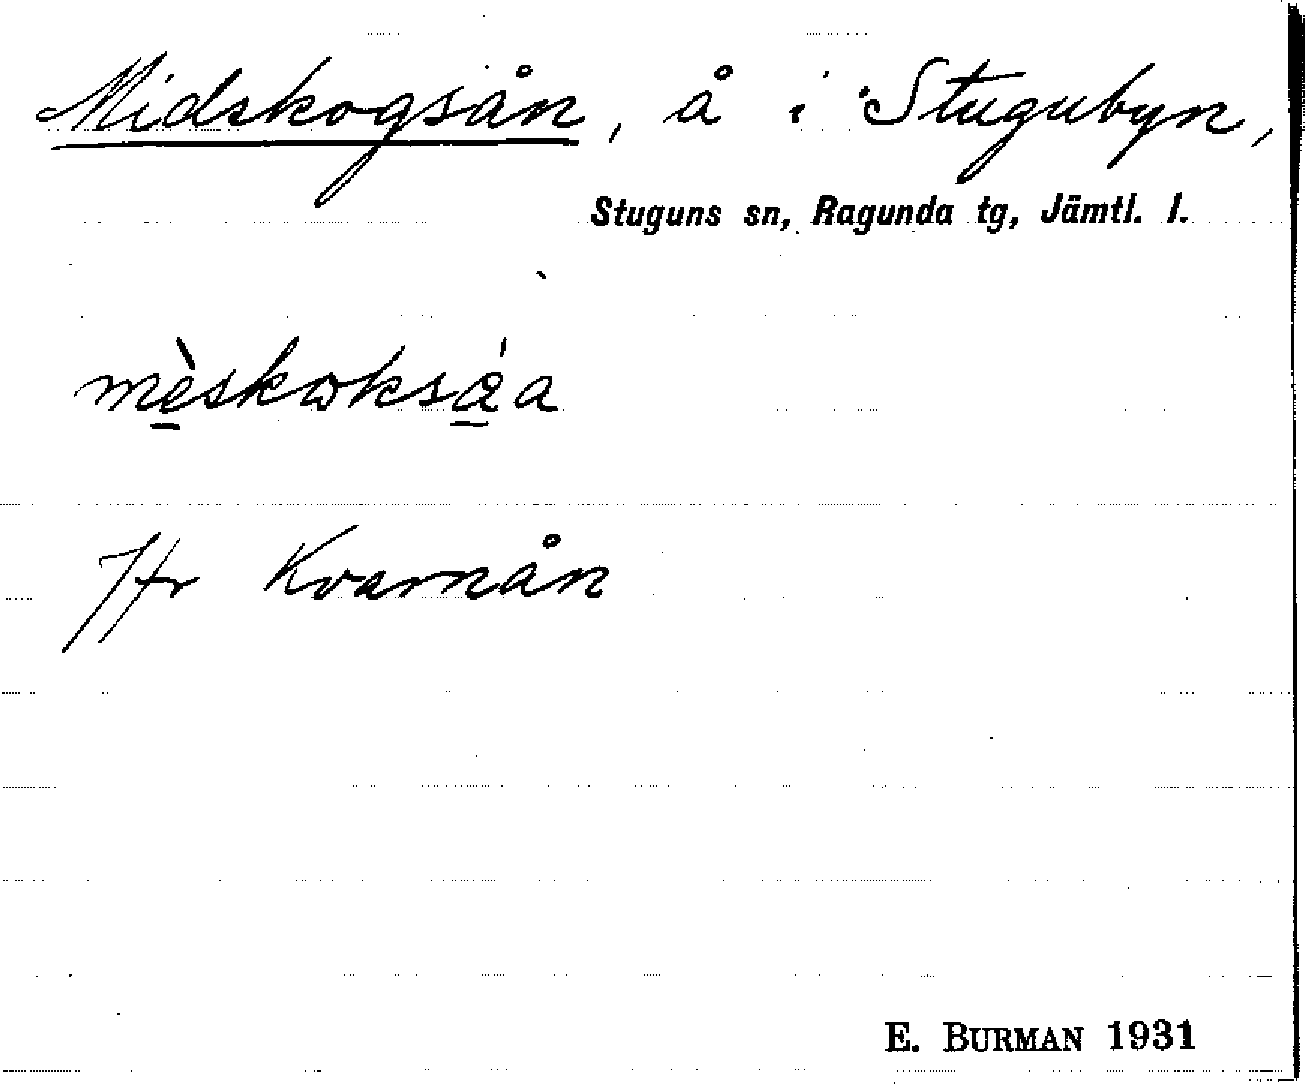 Midskogsån, å i Stugubyn,
Stuguns sn, Ragunda tg, Jämtl. l.
Jfr Kvarnån
E. BURMAN 1931